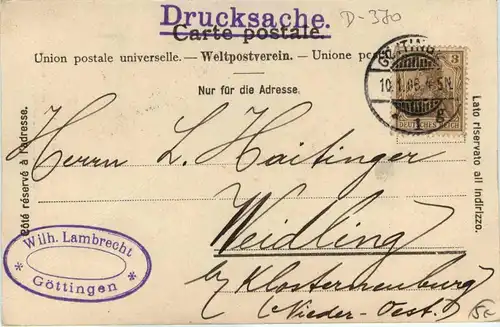 Drucksache.
D-370
Carte postale.
Union postale universelle. — Weltpostverein. — Unione pos
Nur für die Adresse.
GÖTTING
10.1.06.4-5N.
* 1 g
3
DEUTSCHES REICH
Côté réservé à l'adresse.
Lato riservato all indirizzo.
Herrn L. Haitinger
Weidling
b/ Klosterneuburg
(Nieder-Oest.)
Wilh. Lambrecht
* *
Göttingen